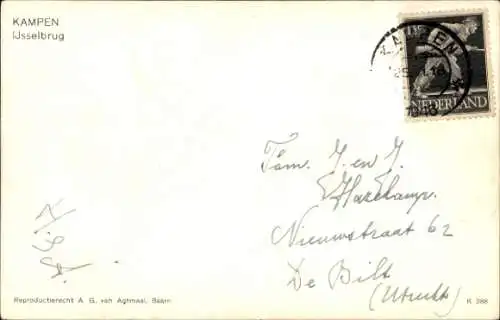 KAMPEN
IJsselbrug
KAMPEN
1946
NEDERLAND
Fam. J. en J.
Harekamp.
Nieuwstraat 62
De Bilt
(Utrecht)
Reproductierecht A. G. van Agtmaal, Baarn
K 288